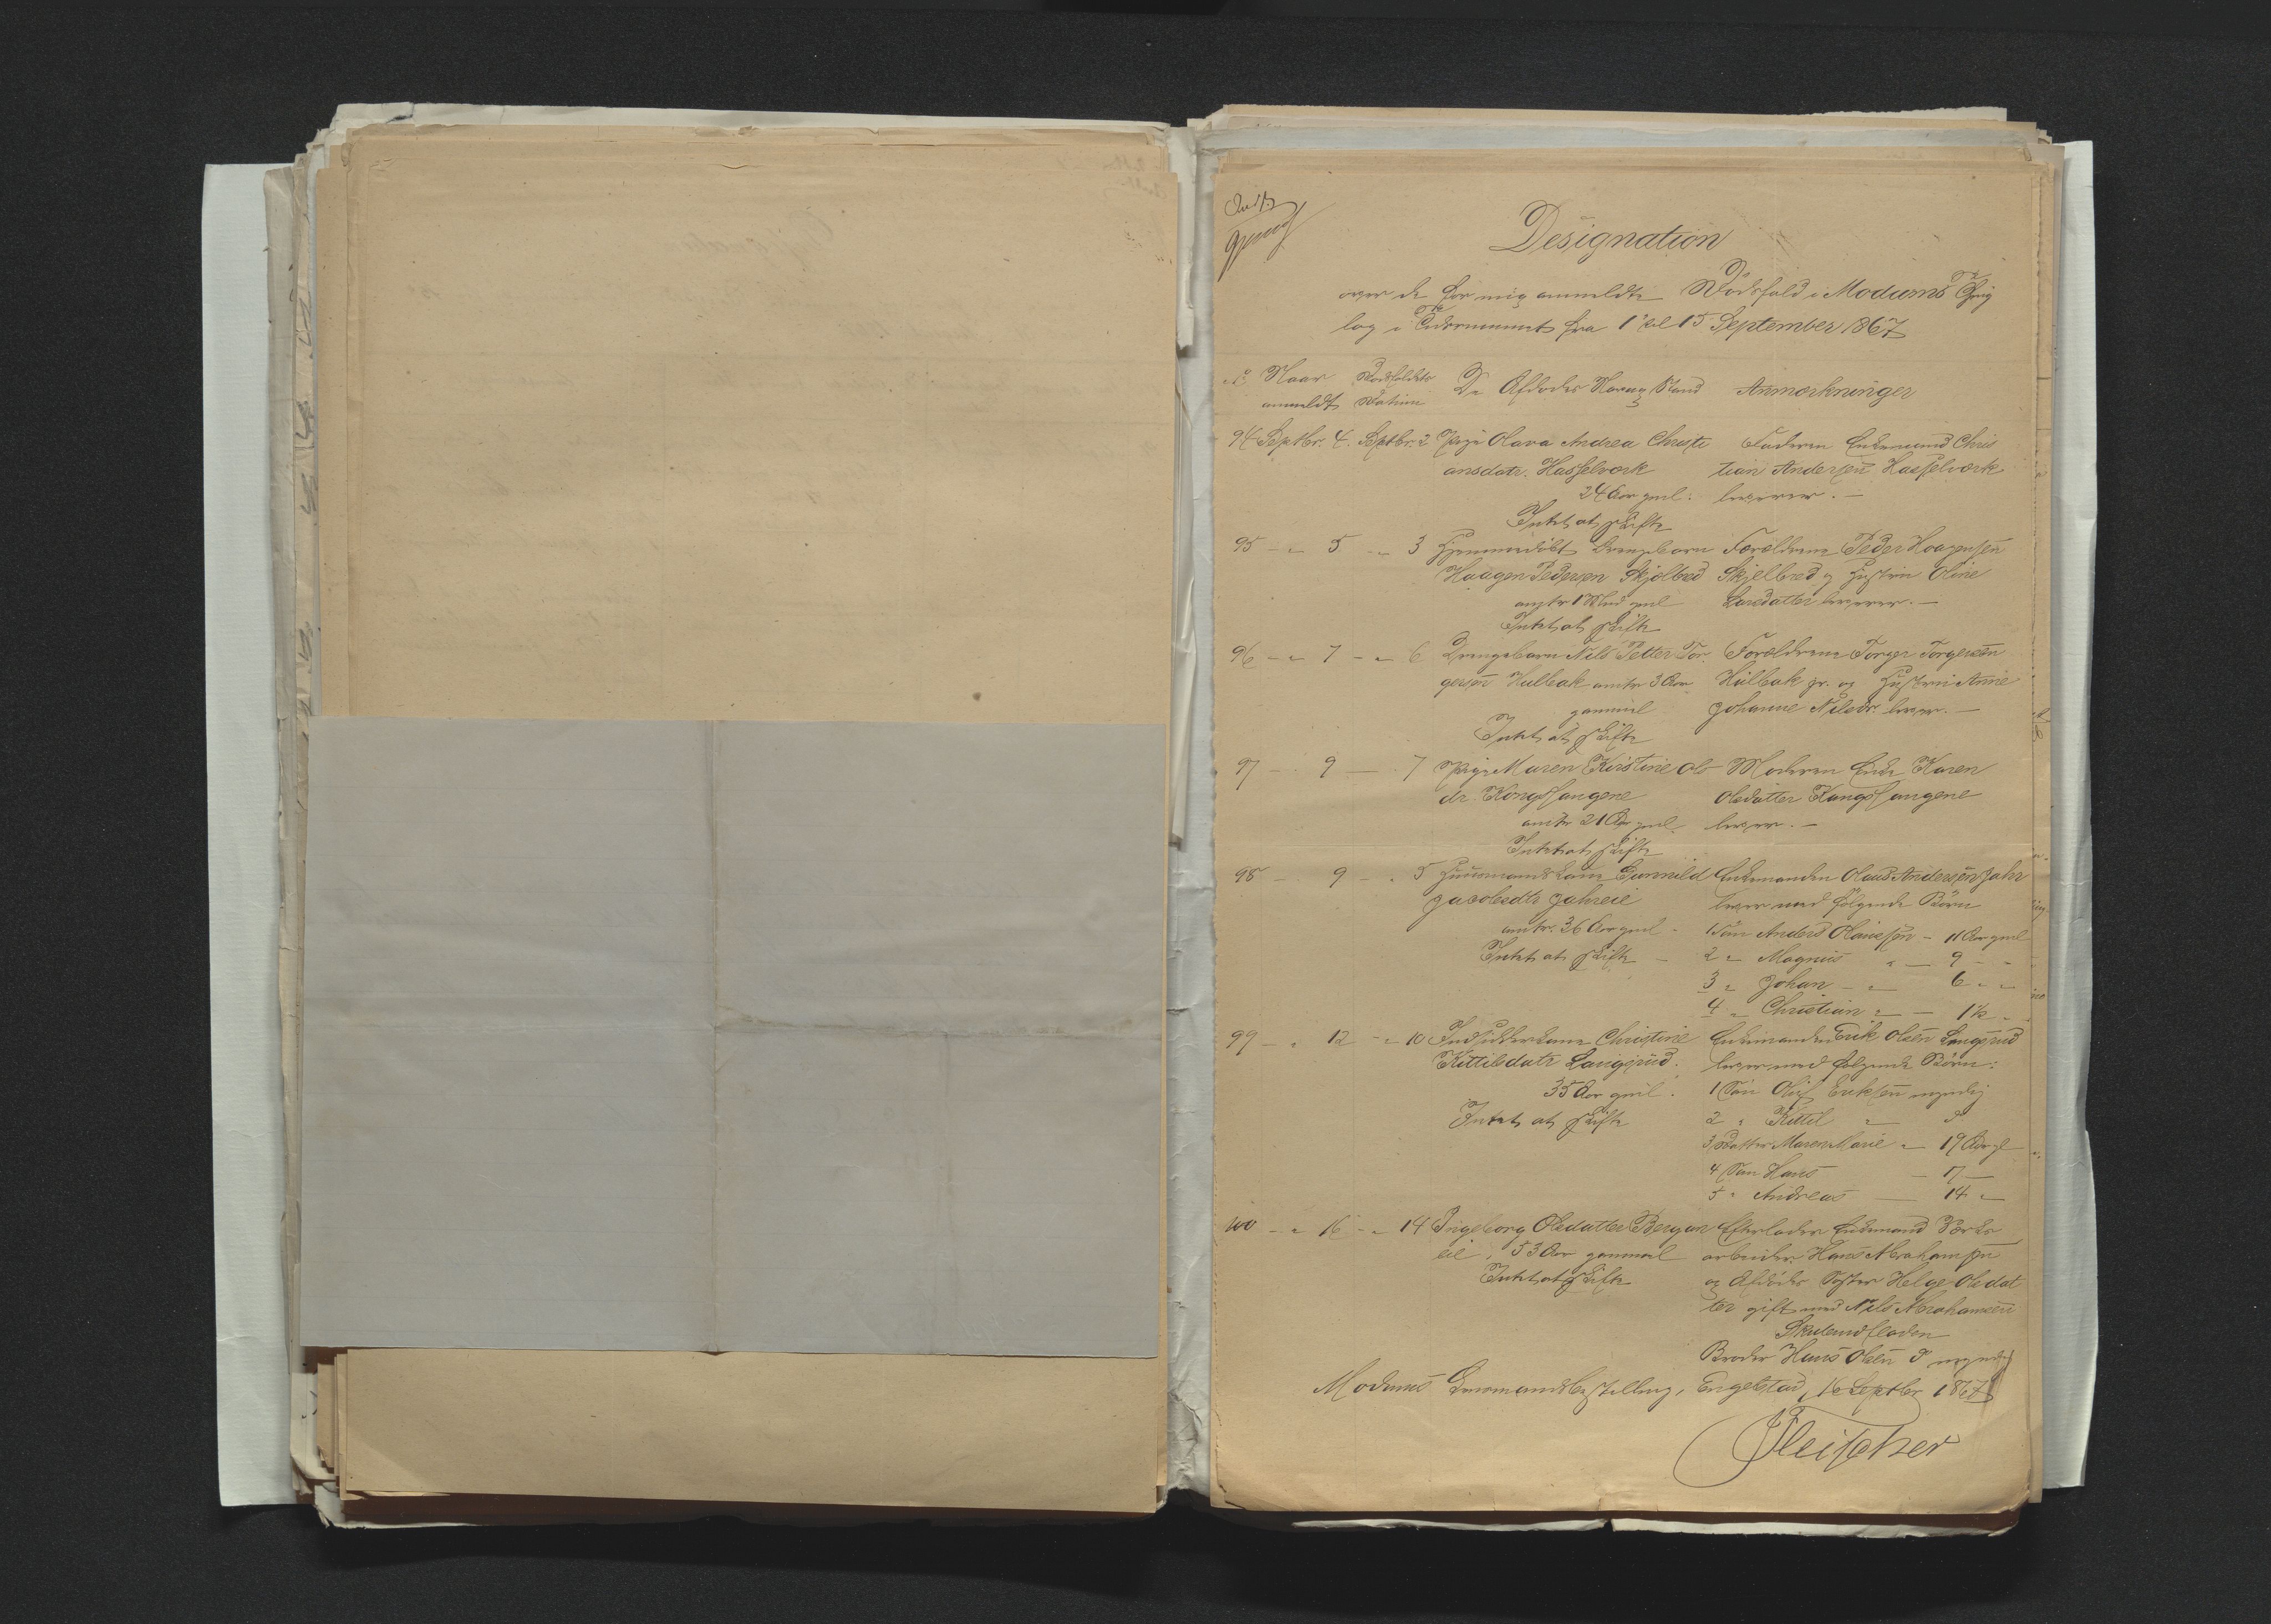 Designation
over de for mig anmeldte Dødsfald i Modums Thing
lag i Tidsrummet fra 1 til 15 September 1867
No Naar Dødsfaldets De Afdødes Navn og Stand Anmærkninger
anmeldt Datum
94 Septbr. 4. Septbr. 2 Pige Olava Andrea Christi Faderen Enkemand Chris
ansdatr. Hasselværk tian Andersen Hasselværk
24 Aar gml. lever. —
Intet at skifte
95 — " 5 — " 3 Hjemmedøbt Drengebarn Forældrene Peder Haagensen
Haagen Pedersen Skjelbred Skjelbred og Hustru Oline
1 gml Larsdatter lever. —
Intet at skifte
96 — " 7 — " 6 Drengebarn Nils Petter Tor Forældrene Torger Torgersen
gersen Hulbak omtr 3 Aar Hulbak og Hustru Anne
gammel Johanne Nilsdr. lever. —
Intet at skifte
97 — " 9 — " 7 Pige Maren Kirstine Ols Moderen Enke Karen
dr. Kongssangene Olsdatter Kongssangene
omtr 21 Aar gml. lever. —
Intet at skifte
98 — 9 — " 5 Huusmandskone Gunnild Enkemanden Olaus Andersen Jahr
Jacobsdtr Jahreie lever med følgende Børn
omtr. 36 Aar gml. 1 Søn Anders Olausen — 11 Aar gml
Intet at skifte — 2 " Magnus " — 9 — "
3 " Johan — " 6 " "
4 " Christian " — 1½ "
99 — " 12 — " 10 Inderstkone Christine Enkemanden Erik Olsen Langsrud
Kittilsdatr Langsrud. lever med følgende Børn:
35 Aar gml. 1 Søn Oluf Eriksen myndig
Intet at skifte 2 " Kittil " do
3 Datter Maren Marie " 19 Aar gl
4 Søn Hans — 17 —
5 " Andreas — 14 "
100 — " 16 — " 14 Ingeborg Olsdatter Bergan Efterlader Enkemand Værks
eie, 53 Aar gammel arbeider Hans Abrahamsen
Intet at skifte og Afdødes Søster Helge Olsdat
ter gift med Nils Abrahamsen
Broder Hans Olsen do myndig
Modums Lensmandsbestilling, Engelstad, 16 Septbr 1867
Fleischer